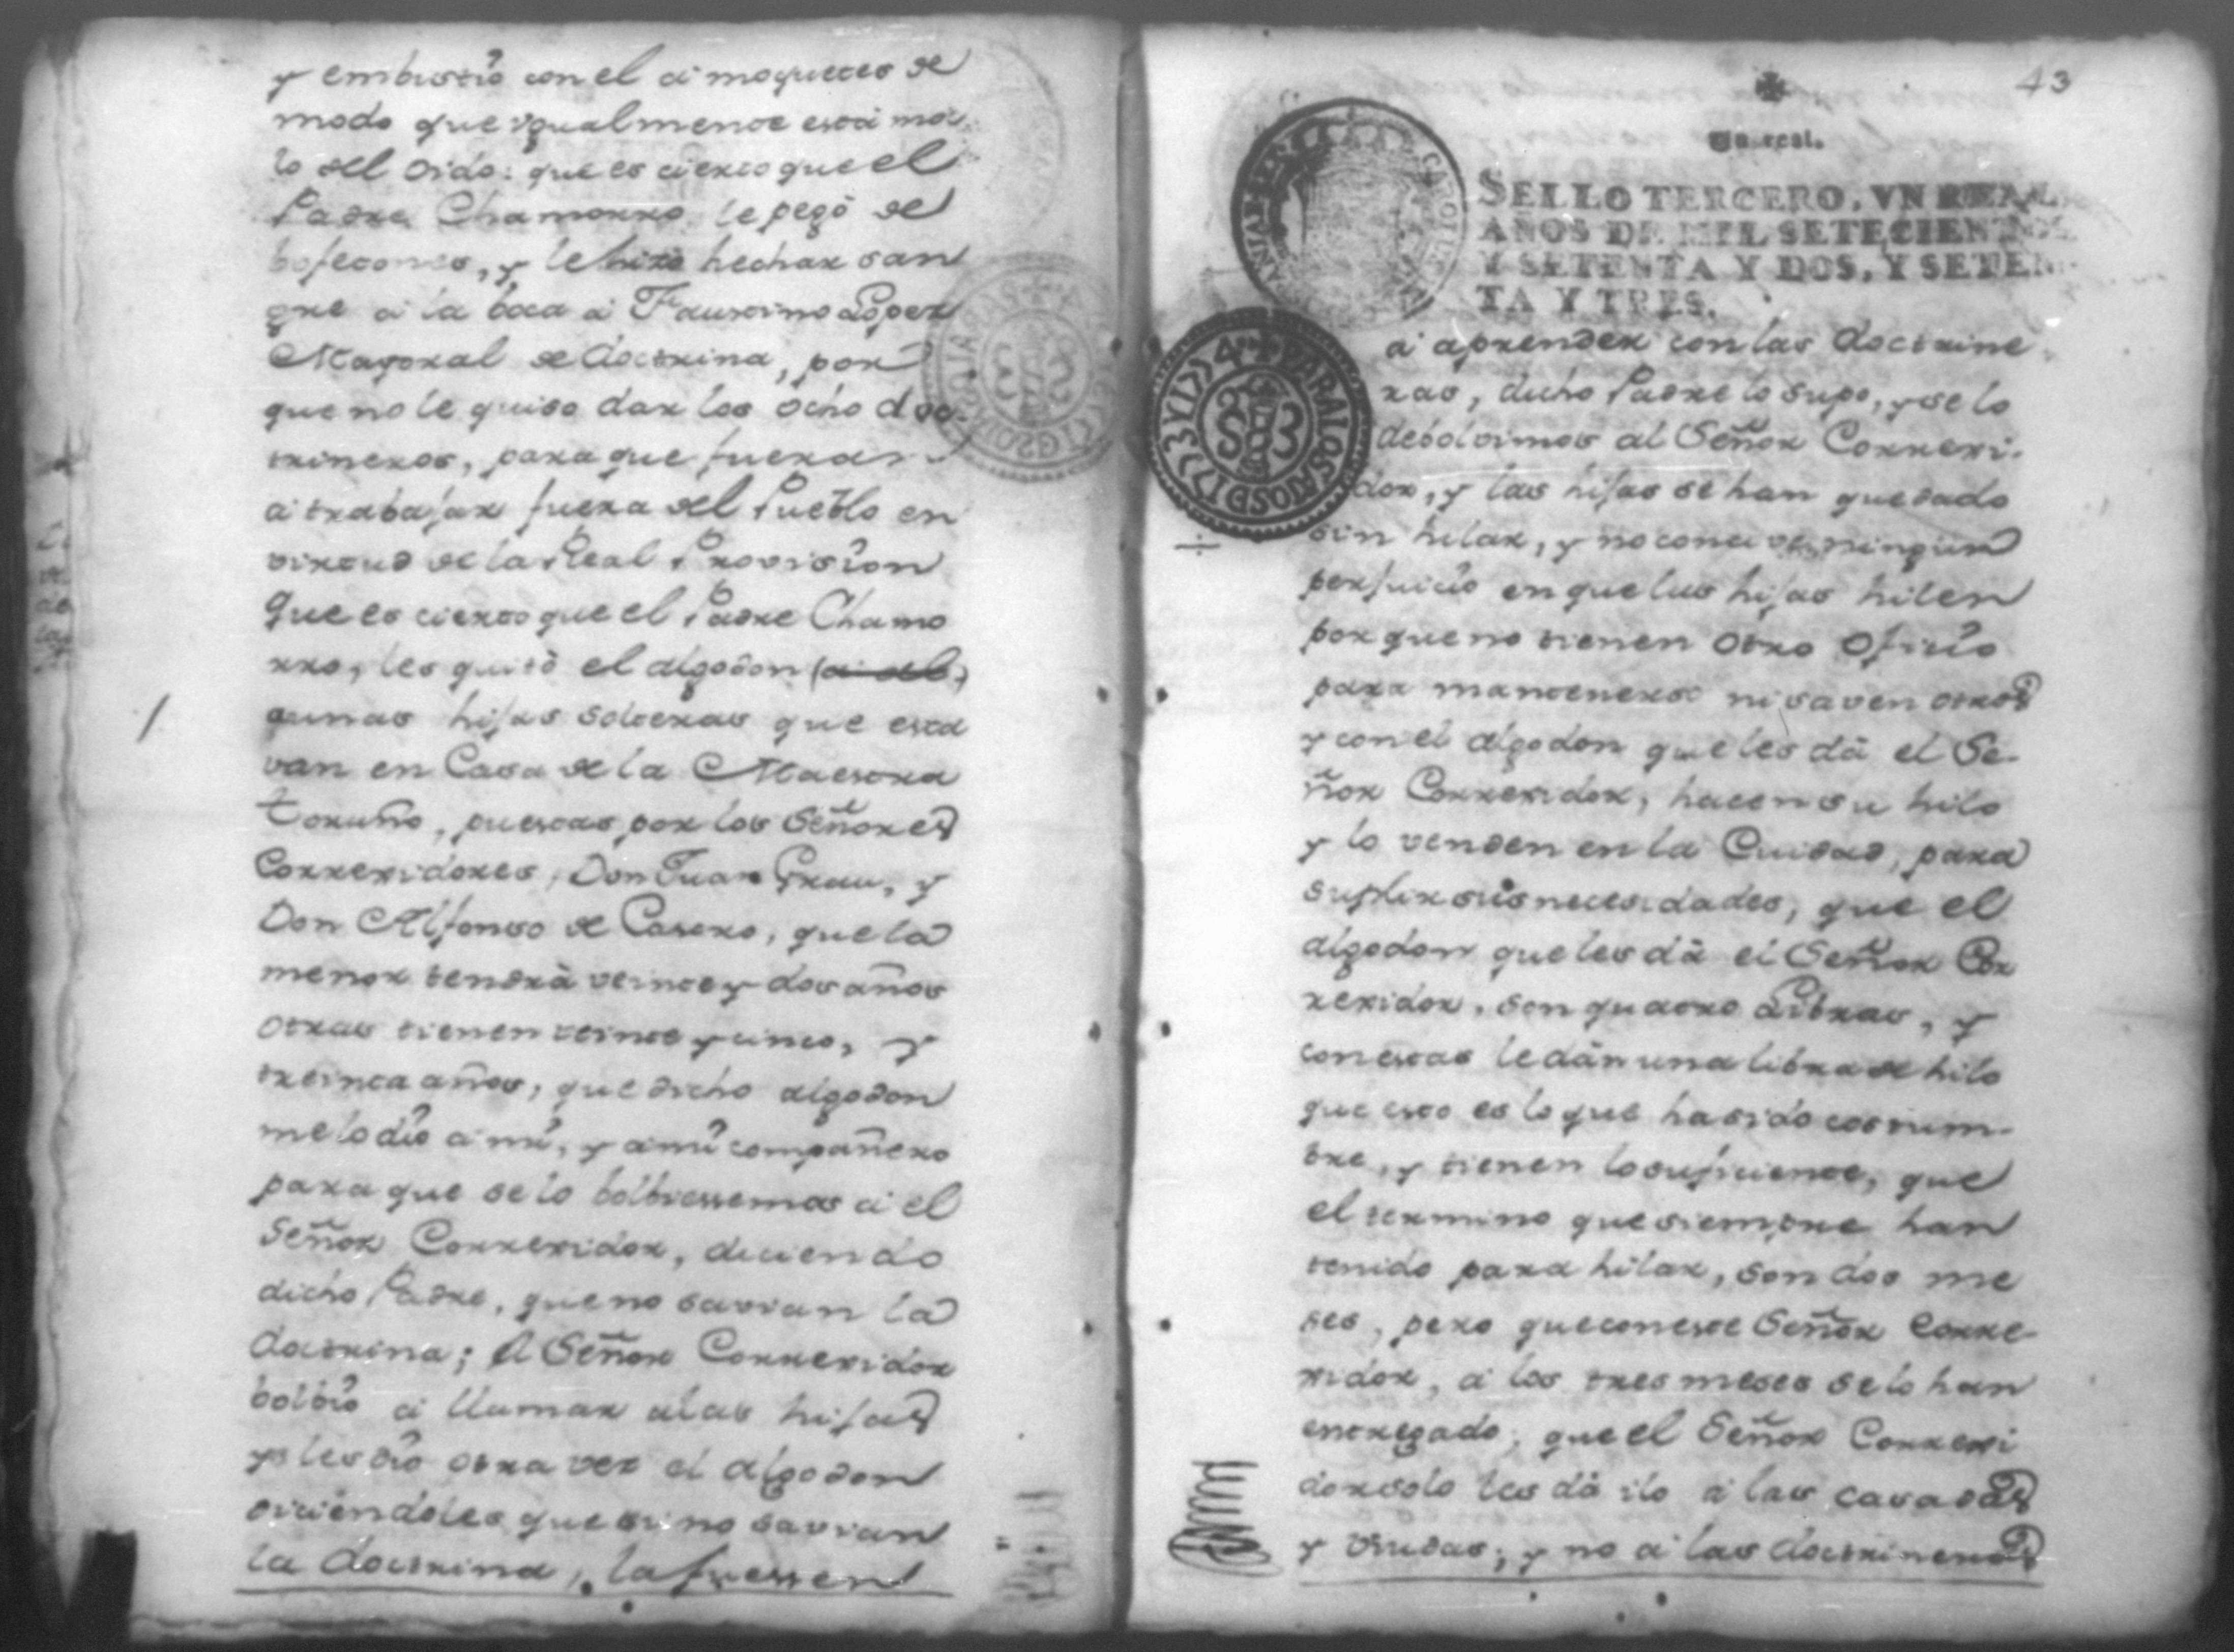 y embistio con el a moquetes de
modo que ygualmente està ma-
lo del oido: que es cierto que el
Padre Chamorro le pegò de
bofetones, y le hizo hechar san
gre a la boca a Faustino Lopez
Mayoral de doctrina, por
que no le quiso dar los ocho doc-
trineros, para que fueran
a trabajar fuera del Pueblo en
virtud de la Real Provision
que es cierto que el Padre Chamo
rro, les quitò el algodon (a al)
gunas hijas solteras que esta
van en Casa de la Maestra
Toruño, puestas por los Señores
Correxidores, Don Juan Grau, y
Don Alfonso de Casero, que la
menor tendrà veinte y dos años
otras tienen veinte y cinco, y
treinta años, que dicho algodon
me lo diò a mi, y a mi compañero
para que se lo bolbiessemos a el
Señor Correxidor, diciendo
dicho Padre, que no savian la
doctrina; el Señor Correxidor
bolbiò a llamar a las hijas
y les diò otra vez el algodon
diciendoles que si no savian
la doctrina, la fuessen
43
Un real.
SELLO TERCERO, VN REAL,
AÑOS DE MIL SETECIENTOS
Y SETENTA Y DOS, Y SETEN-
TA Y TRES.
PARA LOS AÑOS D 1773 Y 1774
a aprender con las doctrine
ras, dicho Padre lo supo, y se lo
debolvimos al Señor Correxi-
dor, y las hijas se han quedado
sin hilar, y no ningun
perjuicio en que las hijas hilen
porque no tienen otro oficio
para mantenerse ni saven otros
y con el algodon que les dà el Se-
ñor Correxidor, hacen su hilo
y lo venden en la Ciudad, para
suplir sus necesidades, que el
algodon que les dà el Señor Cor
rexidor, son quatro Libras, y
con estas le dàn una libra de hilo
que esto es lo que ha sido costum-
bre, y tienen lo suficiente, que
el termino que siempre han
tenido para hilar, son dos me
ses, pero que con este Señor Corre-
xidor, a los tres meses se lo han
entregado; que el Señor Correxi
dor solo les dà ilo a las casadas
y viudas; y no a las doctrineras